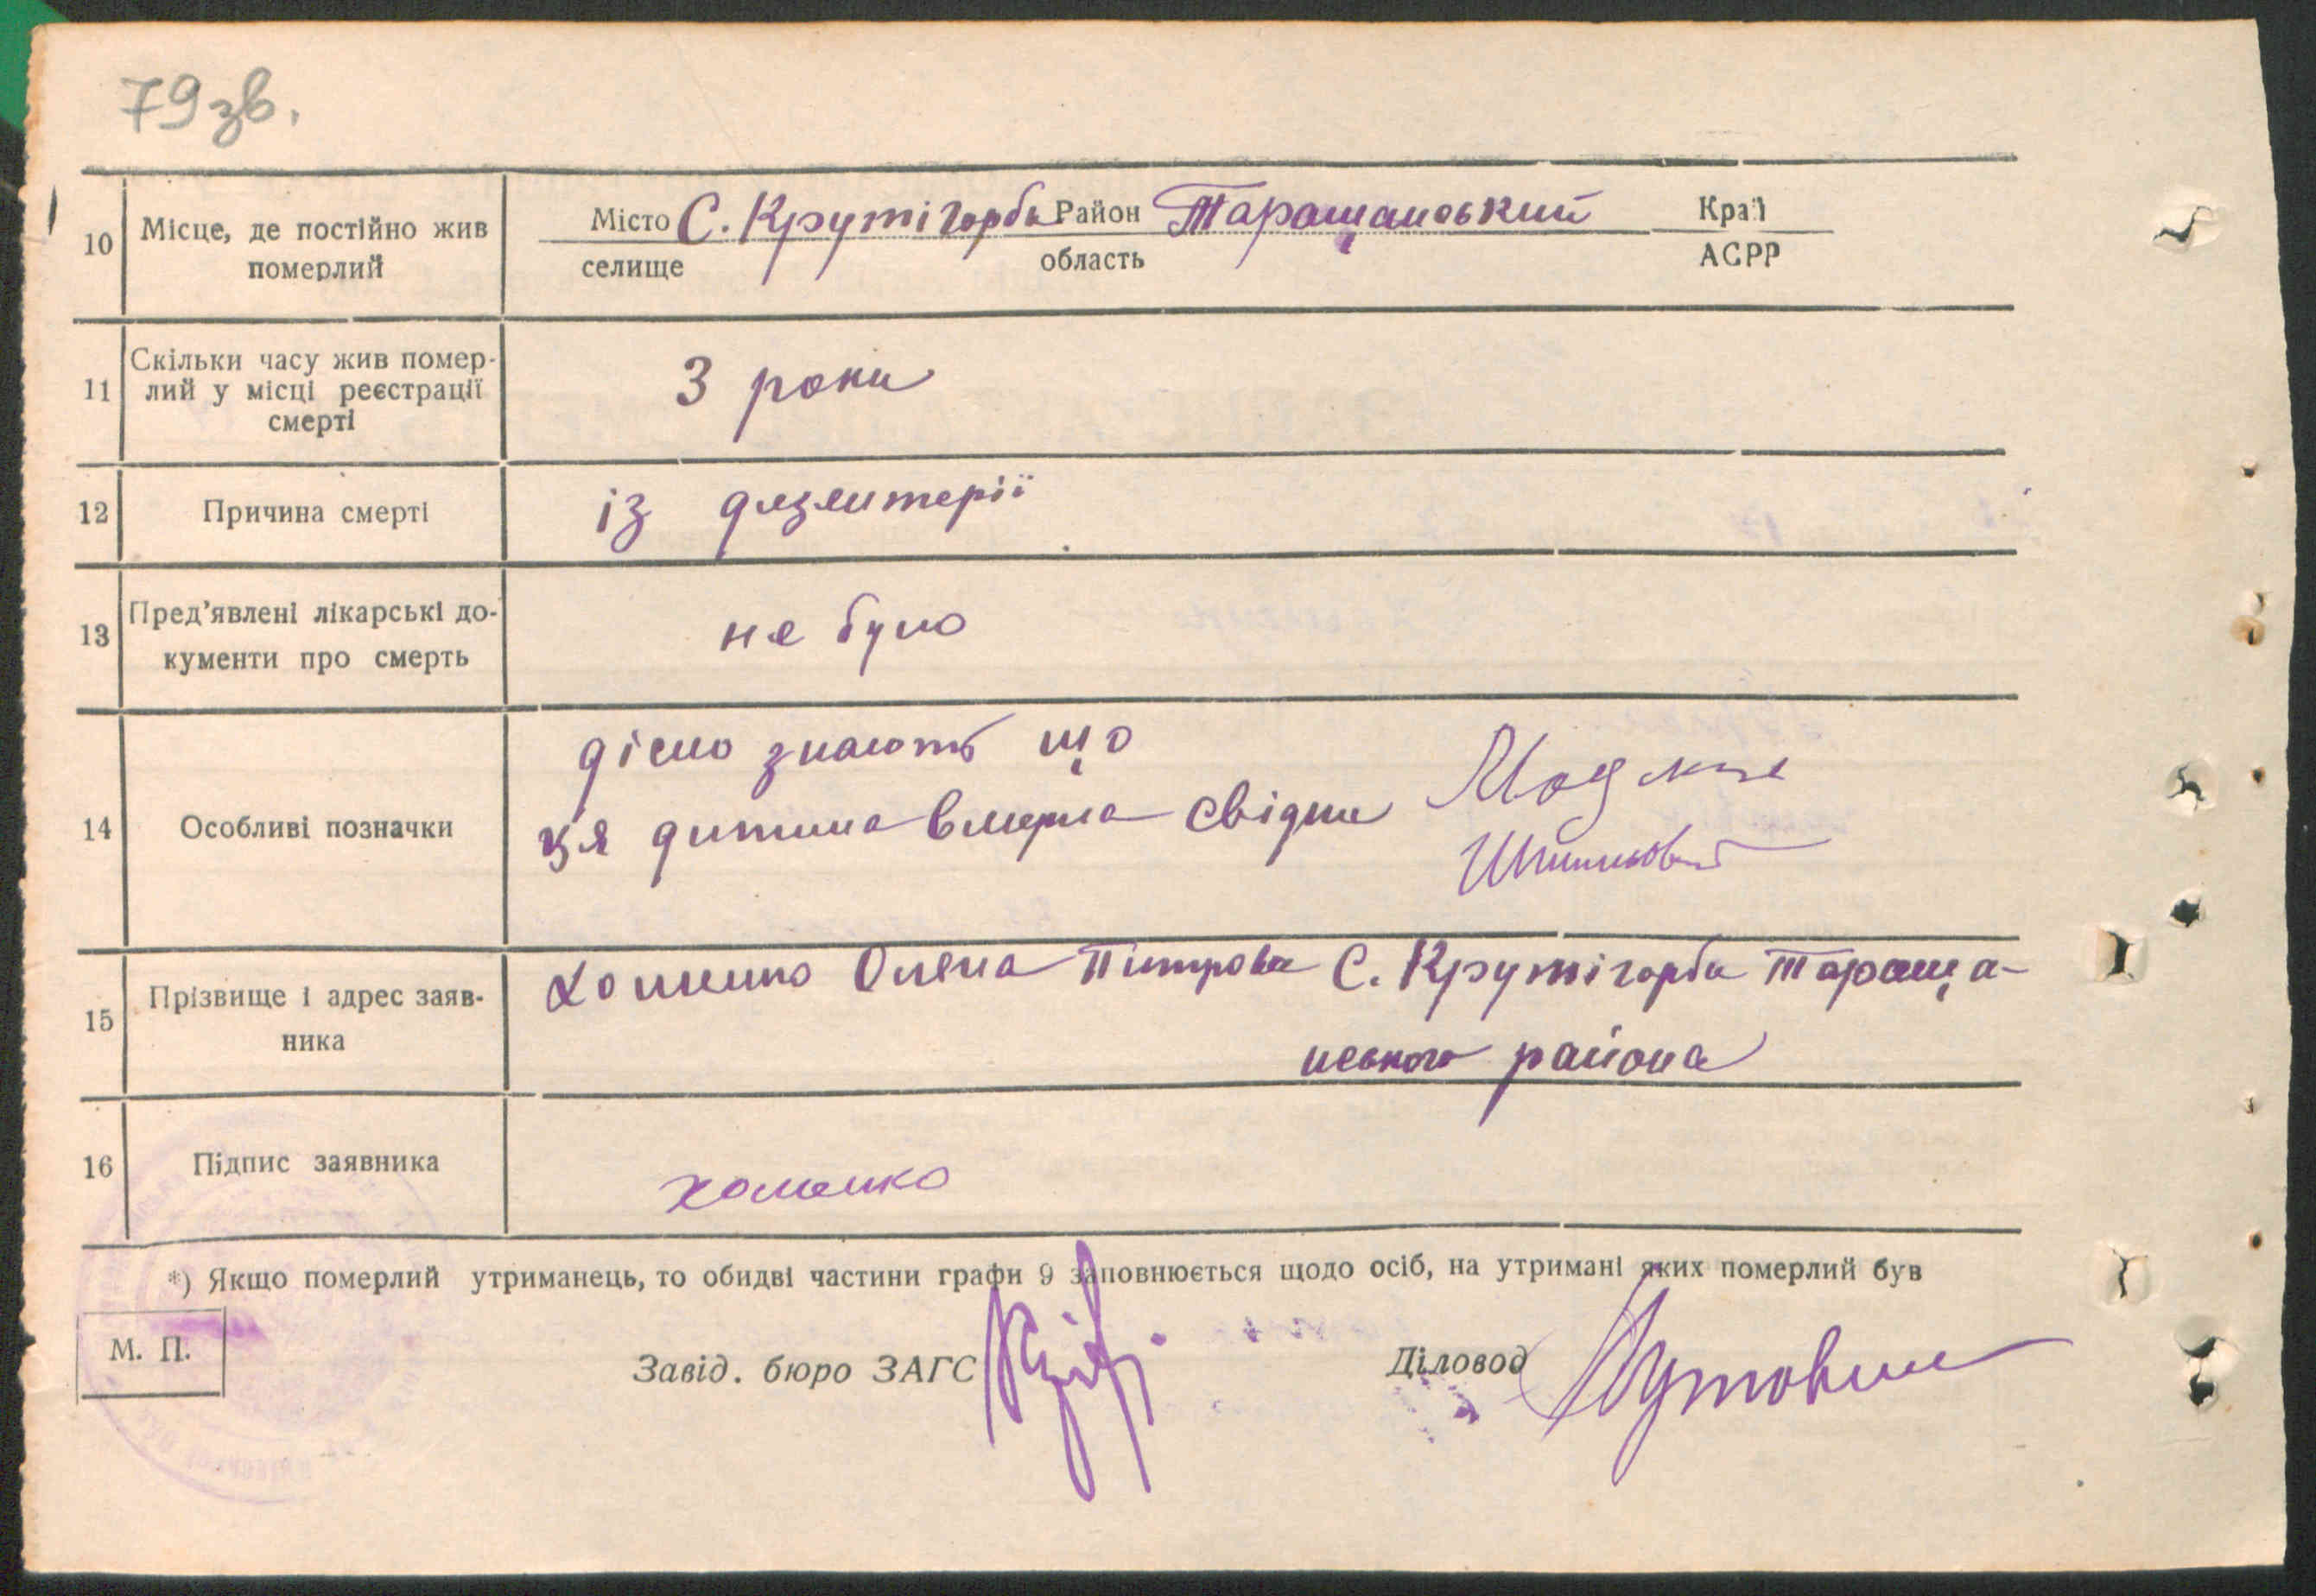 79 зв.
10 Місце, де постійно жив померлий
Місто С. Крутігорби Район Таращанський Край
селище область АСРР
11 Скільки часу жив помер-
лий у місці реєстрації
смерті
3 роки
12 Причина смерті
із дизентерії
13 Пред'явлені лікарські до-
кументи про смерть
не було
14 Особливі позначки
дісно знають що
ця дитина вмерла свідки
15 Прізвище і адрес заяв-
ника
Хоменко Олена Питровна С. Крутігорби Тараща-
нського района
16 Підпис заявника
хоменко
*) Якщо померлий утриманець, то обидві частини графи 9 заповнюється щодо осіб, на утримані яких померлий був
М. П.
Завід. бюро ЗАГС
Діловод